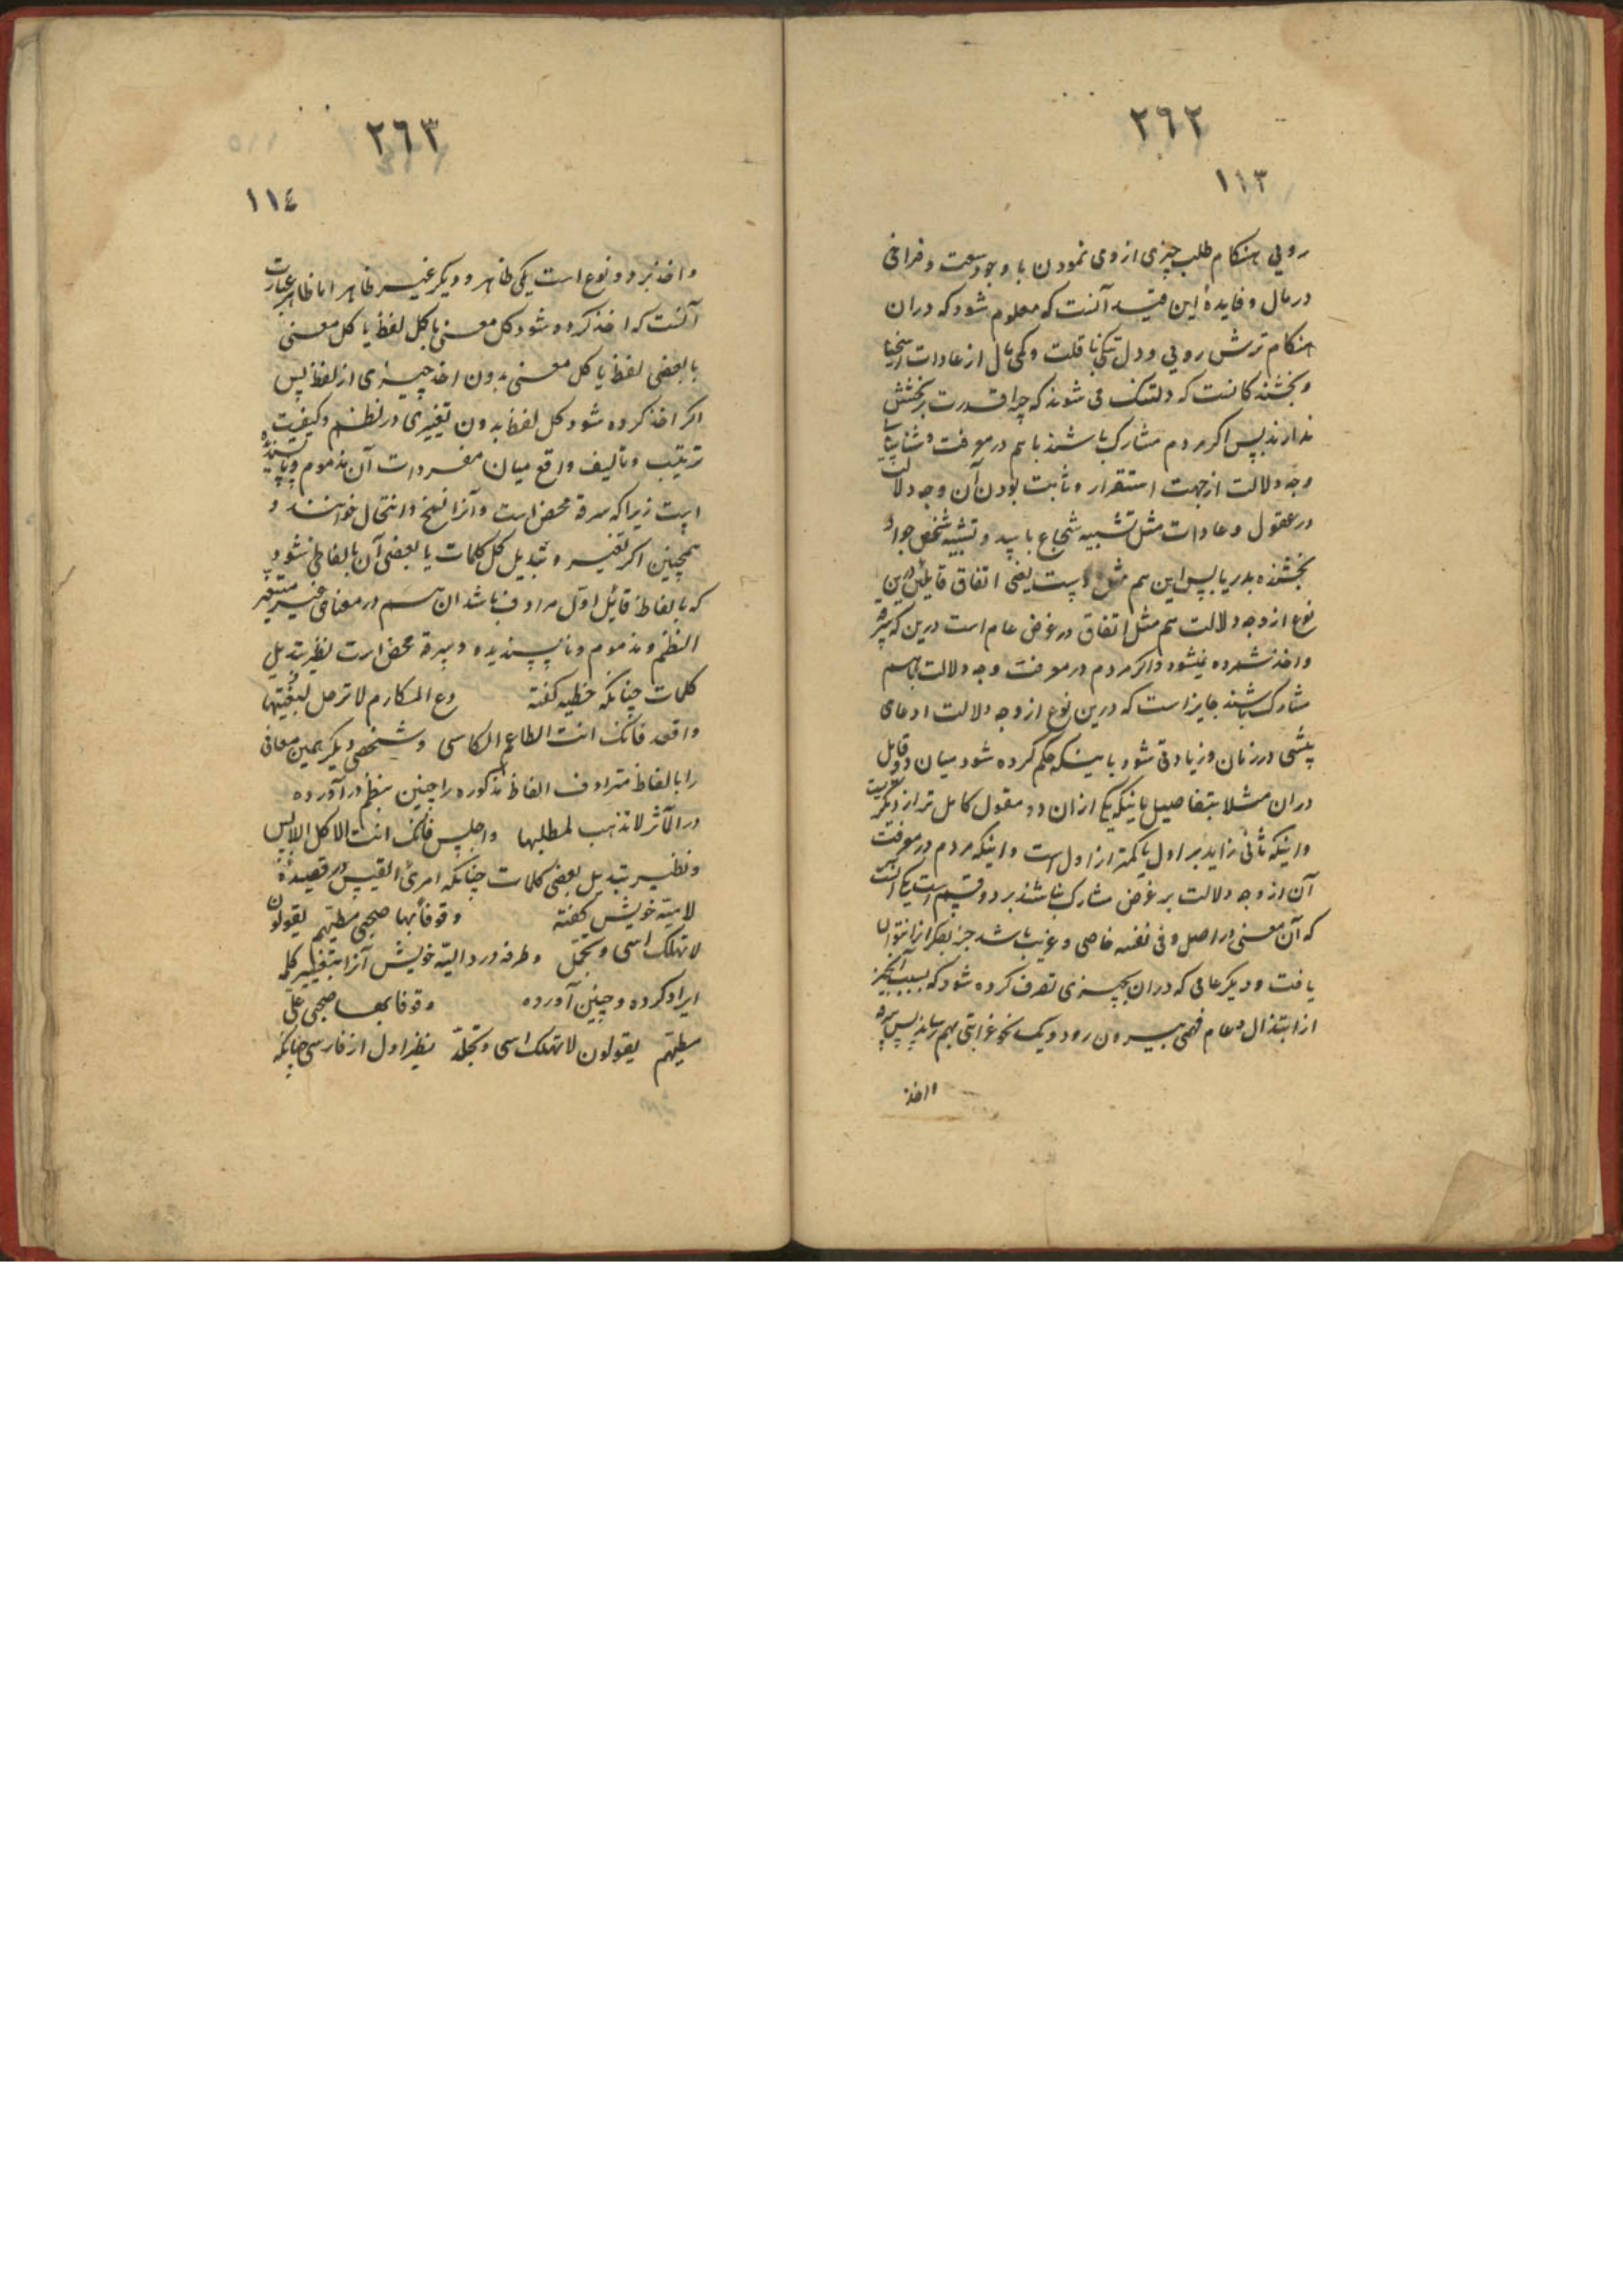 ٢٦٢
١١٣
رویی هنکام طلب چیزی از وی نمودن با وجود سعت و فراخی
در مال و فایدهٔ این قید آنست که معلوم شود که دران
هنکام ترش رویی و دل تنکی با قلت و کمی مال از عادات اسخیا
و بخشندکانست که دلتنک می شوند که چرا قدرت بر بخشش
ندارند پس اکر مردم مشارک باشند باهم در معرفت و شناسایی
وجه دلالت از جهت استقرار و ثابت بودن آن وجه دلالت
در عقول و عادات مثل تشبیه شجاع باسد و تشبیه شخص جواد
بخشنده بدریا پس این هم مثل اوست یعنی اتفاق قایلین درین
نوع از وجه دلالت هم مثل اتفاق در غرض عام است درین که سرقه
و اخذ شمرده نمیشود و اکر مردم در معرفت وجه دلالت باهم
مشارک نباشند جایز است که درین نوع از وجه دلالت ادعای
پیشی در زمان و زیادتی شود باینکه حکم کرده شود میان دو قایل
دران مثلا بتفاصیل باینکه یکی ازان دو مقول کامل تر از دیکریست
و اینکه ثانی زاید بر اول یا کمتر از اول است و اینکه مردم در معرفت
آن از وجه دلالت بر غرض مشارک نباشند بر دو قسم است یکی آنست
که آن معنی در اصل و فی نفسه خاصی و غریب باشد جز بفکر آنرا نتوان
یافت و دیکر عامی که دران بچیزی تصرف کرده شود که بسبب آنچیز
از ابتذال و عام فهمی بیرون رود و یک نحو غرابتی بهم رساند پس سرقه
و اخذ
٢٦٣
١١٤
و اخذ بر دو نوع است یکی ظاهر و دیکر غیر ظاهر اما ظاهر عبارت
آنست که اخذ کرده شود کل معنی با کل لفظ یا کل معنی
با بعضی لفظ یا کل معنی بدون اخذ چیزی از لفظ پس
اکر اخذ کرده شود کل لفظ بدون تغییری در نظم و کیفیت
ترتیب و تألیف واقع میان مفردات آن مذموم و ناپسندیده
است زیرا که سرقهٔ محض است و آنرا نسخ و انتحال خوانند و
همچنین اکر تغییر و تبدیل کل کلمات یا بعضی آن بالفاظی شود
که با لفاظ قائل اول مرادف باشد ان هم در معنای غیر متغیر
النظم و مذموم و ناپسندیده و سرقهٔ محض است نظیر تبدیل
کلمات چنانکه حطیه کفته دع المکارم لا ترحل لبغیتها
و اقعد فانک انت الطاعم الکاسی و شخصی دیکر همین معانی
را بالفاظ مترادف الفاظ مذکوره را چنین بنظم در آورده
ذر المآثر لا تذهب لمطلبها و اجلس فانک انت الاکل اللابس
و نظیر تبدیل بعضی کلمات چنانکه امرئ القیس در قصیدهٔ
لامیهٔ خویش کفته وقوفا بها صحبی مطیهم یقولون
لا تهلک اسی و تجمل و طرفه در دالیهٔ خویش آنرا بتغییر کلمه
ایراد کرده و چنین آورده وقوفا بها صحبی علی
مطیهم یقولون لا تهلک اسی و تجلد نظیر اول از فارسی چنانکه